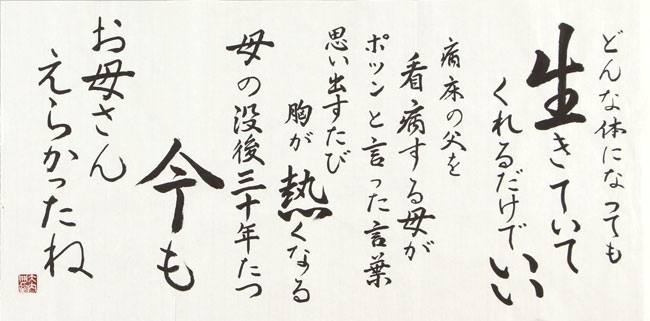 どんな体になっても
生きていて
くれるだけでいい
病床の父を
看病する母が
ポツンと言った言葉
思い出すたび
胸が熱くなる
母の没後三十年たつ
今も
お母さん
えらかったね